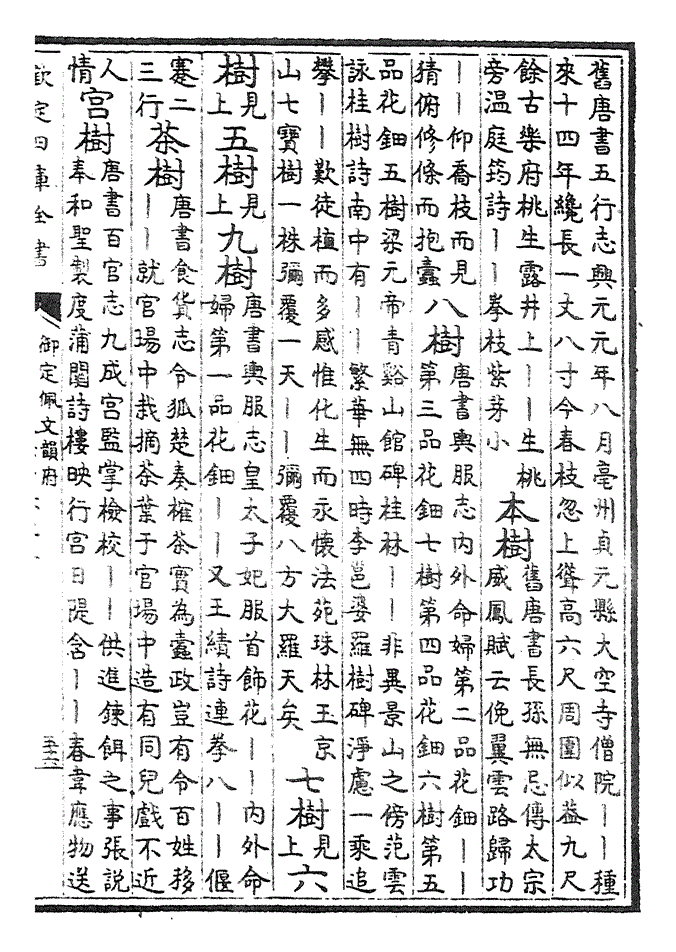 舊唐書五行志興元元年八月亳州貞元縣大空寺僧院丨丨種
來十四年纔長一丈八寸今春枝忽上聳高六尺周圍似葢九尺
餘古樂府桃生露井上丨丨生桃
旁温庭筠詩丨丨拳枝紫芽小
本樹
舊唐書長孫無忌傳太宗
威鳳賦云俛翼雲路歸功
丨丨仰喬枝而見
猜俯修條而抱蠹
八樹
唐書輿服志内外命婦第二品花鈿丨丨
第三品花鈿七樹第四品花鈿六樹第五
品花鈿五樹梁元帝青谿山館碑桂林丨丨非異景山之傍范雲
詠桂樹詩南中有丨丨繁華無四時李邕娑羅樹碑淨慮一乘追
攀丨丨歎徒植而多感惟化生而永懷法苑珠林王京
山七寶樹一株彌覆一天丨丨彌覆八方大羅天矣
七樹
見
上
六
樹
見
上
五樹
見
上
九樹
唐書輿服志皇太子妃服首飾花丨丨内外命
婦第一品花鈿丨丨又王績詩連拳八丨丨偃
蹇二
三行
茶樹
唐書食貨志令狐楚奏榷茶實為蠹政豈有令百姓移
丨丨就官場中栽摘茶葉于官場中造有同兒戲不近
人
情
宫樹
唐書百官志九成宫監掌檢校丨丨供進鍊餌之事張說
奉和聖製度蒲關詩樓映行宫日隄含丨丨春韋應物送
欽定四庫全書
御定佩文韻府